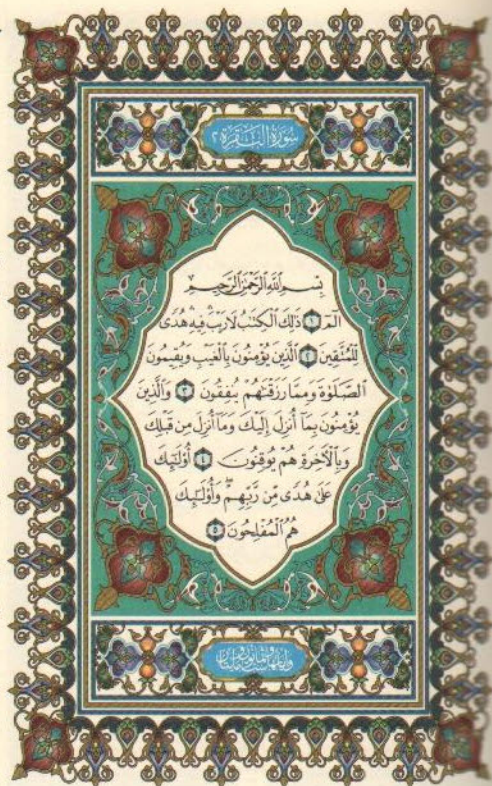 سُورَةُ الْبَقَرَةِ ٢
بِسْمِ ٱللَّهِ ٱلرَّحْمَٰنِ ٱلرَّحِيمِ
الٓمٓ ١ ذَٰلِكَ ٱلْكِتَٰبُ لَا رَيْبَ ۛ فِيهِ ۛ هُدًى
لِّلْمُتَّقِينَ ٢ ٱلَّذِينَ يُؤْمِنُونَ بِٱلْغَيْبِ وَيُقِيمُونَ
ٱلصَّلَوٰةَ وَمِمَّا رَزَقْنَٰهُمْ يُنفِقُونَ ٣ وَٱلَّذِينَ
يُؤْمِنُونَ بِمَآ أُنزِلَ إِلَيْكَ وَمَآ أُنزِلَ مِن قَبْلِكَ
وَبِٱلْءَاخِرَةِ هُمْ يُوقِنُونَ ٤ أُو۟لَٰٓئِكَ
عَلَىٰ هُدًى مِّن رَّبِّهِمْ ۖ وَأُو۟لَٰٓئِكَ
هُمُ ٱلْمُفْلِحُونَ ٥
وآياتها ست وثمانون ومائتان